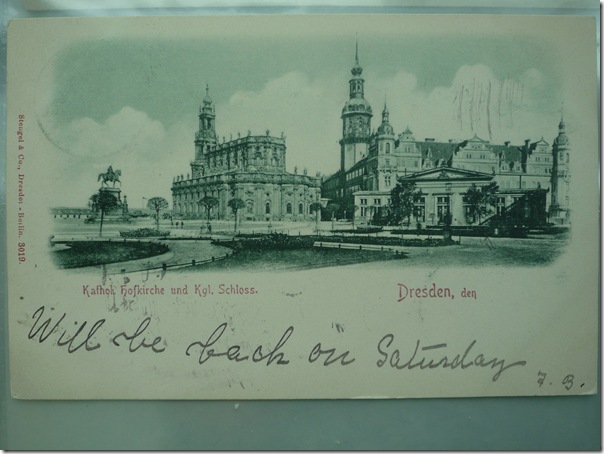 Stengel & Co., Dresden - Berlin. 3019.
Kathol. Hofkirche und Kgl. Schloss.
Dresden, den
Will be back on Saturday
J. B.